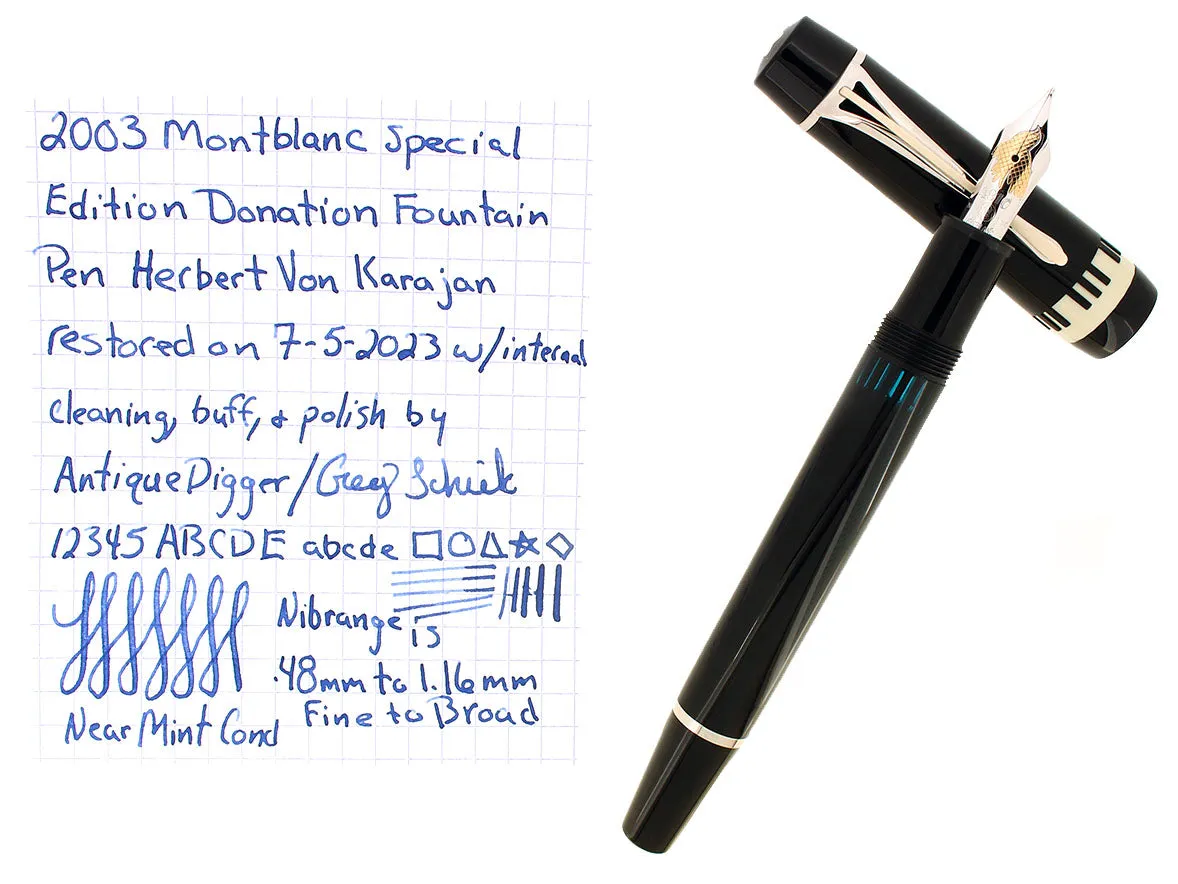 2003 Montblanc Special
Edition Donation Fountain
Pen Herbert Von Karajan
restored on 7-5-2023 w/internal
cleaning, buff, & polish by
AntiqueDigger/Greg
12345 ABCDE abcde
Nibrange is
.48mm to 1.16mm
Fine to Broad
Near Mint Cond